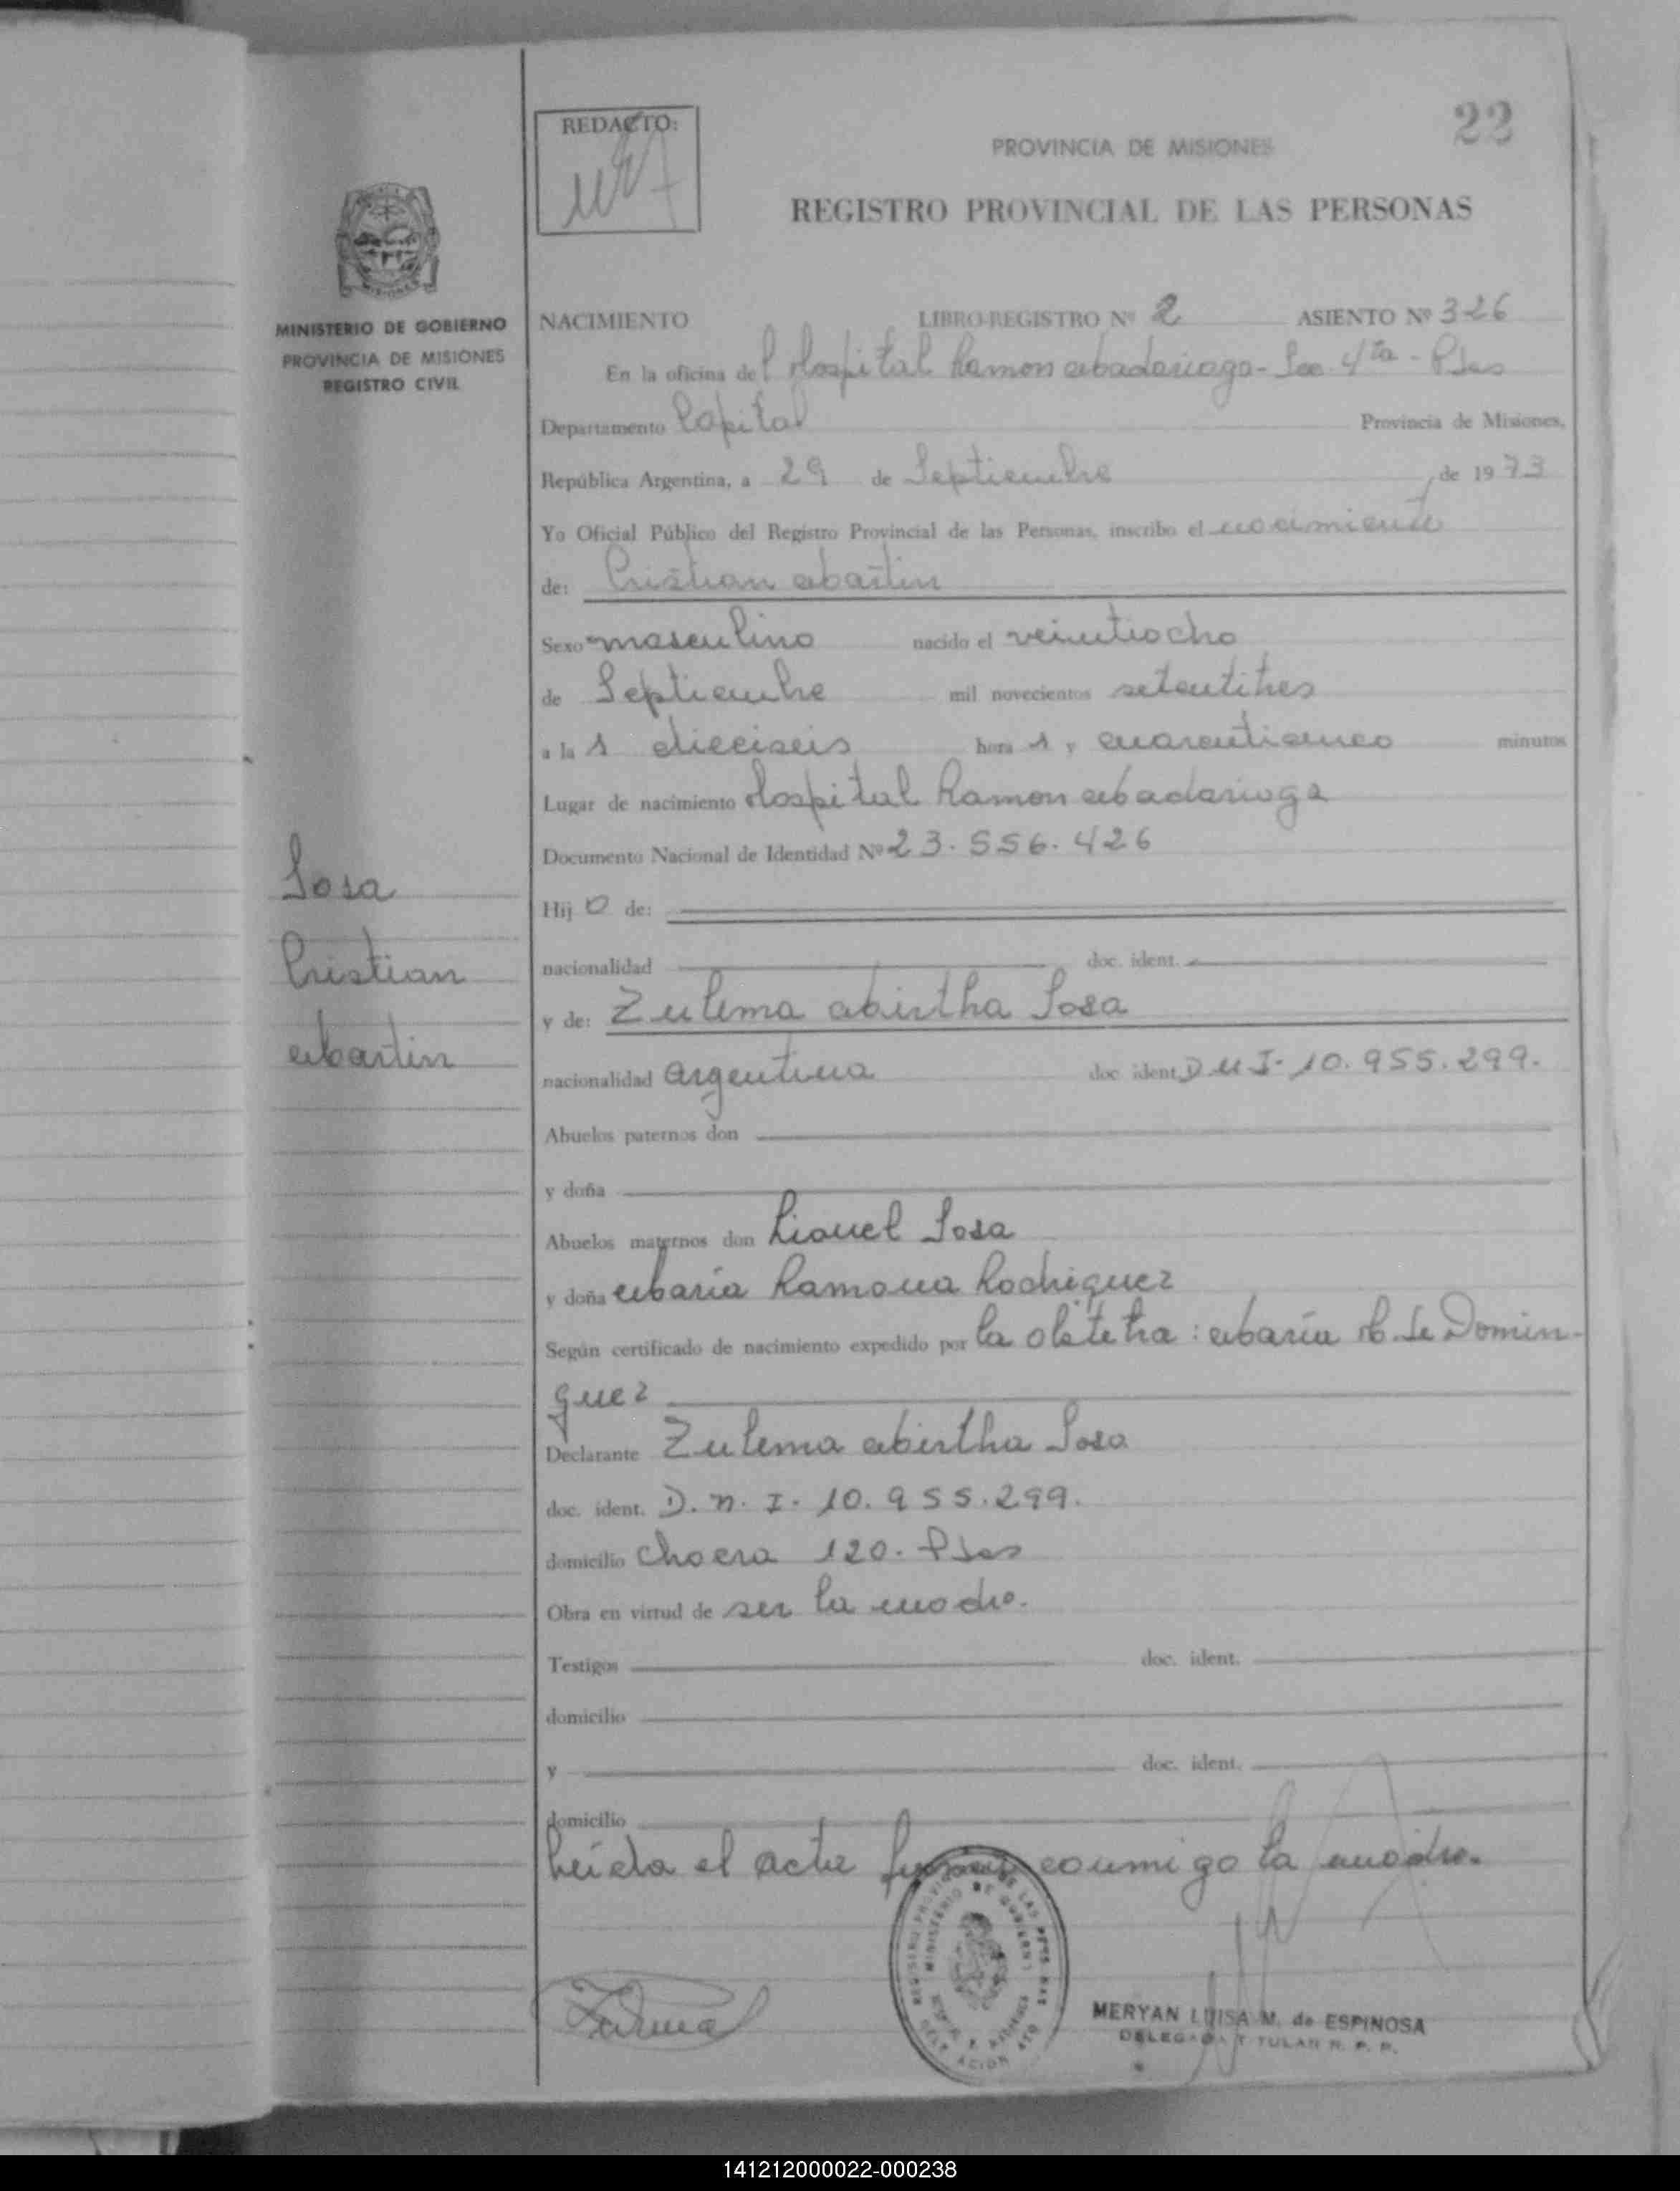 22
REDACTO:
PROVINCIA DE MISIONES
REGISTRO PROVINCIAL DE LAS PERSONAS
MINISTERIO DE GOBIERNO
PROVINCIA DE MISIONES
REGISTRO CIVIL
NACIMIENTO LIBRO-REGISTRO Nº 2 ASIENTO Nº 326
En la oficina del Hospital Ramon Madariaga - Sec. 4ta - Pdas
Departamento Capital Provincia de Misiones,
República Argentina, a 29 de Septiembre de 1973
Yo Oficial Público del Registro Provincial de las Personas, inscribo el nacimiento
de: Cristian Martin
Sexo masculino nacido el veintiocho
de Septiembre mil novecientos setentitres
a las dieciseis horas y cuarenticinco minutos
Lugar de nacimiento Hospital Ramon Madariaga
Documento Nacional de Identidad Nº 23.556.426
Hijo de:
nacionalidad doc. ident.
y de: Zulema Mirtha Sosa
nacionalidad Argentina doc. ident. D N I - 10.955.299.
Abuelos paternos don
y doña
Abuelos maternos don Lionel Sosa
y doña María Ramona Rodriguez
Según certificado de nacimiento expedido por la obstetra: María M. de Domin-
guez
Declarante Zulema Mirtha Sosa
doc. ident. D.N.I. 10.955.299.
domicilio 120. Pdas
Obra en virtud de ser la madre.
Testigos doc. ident.
domicilio
y doc. ident.
domicilio
Leída el acta conmigo la madre.
Sosa
Cristian
Martin
REGISTRO PROVINCIAL DE LAS PERSONAS
MINISTERIO DE GOBIERNO
MERYAN LUISA M. de ESPINOSA
DELEGADA TITULAR R. P. P.
141212000022-000238